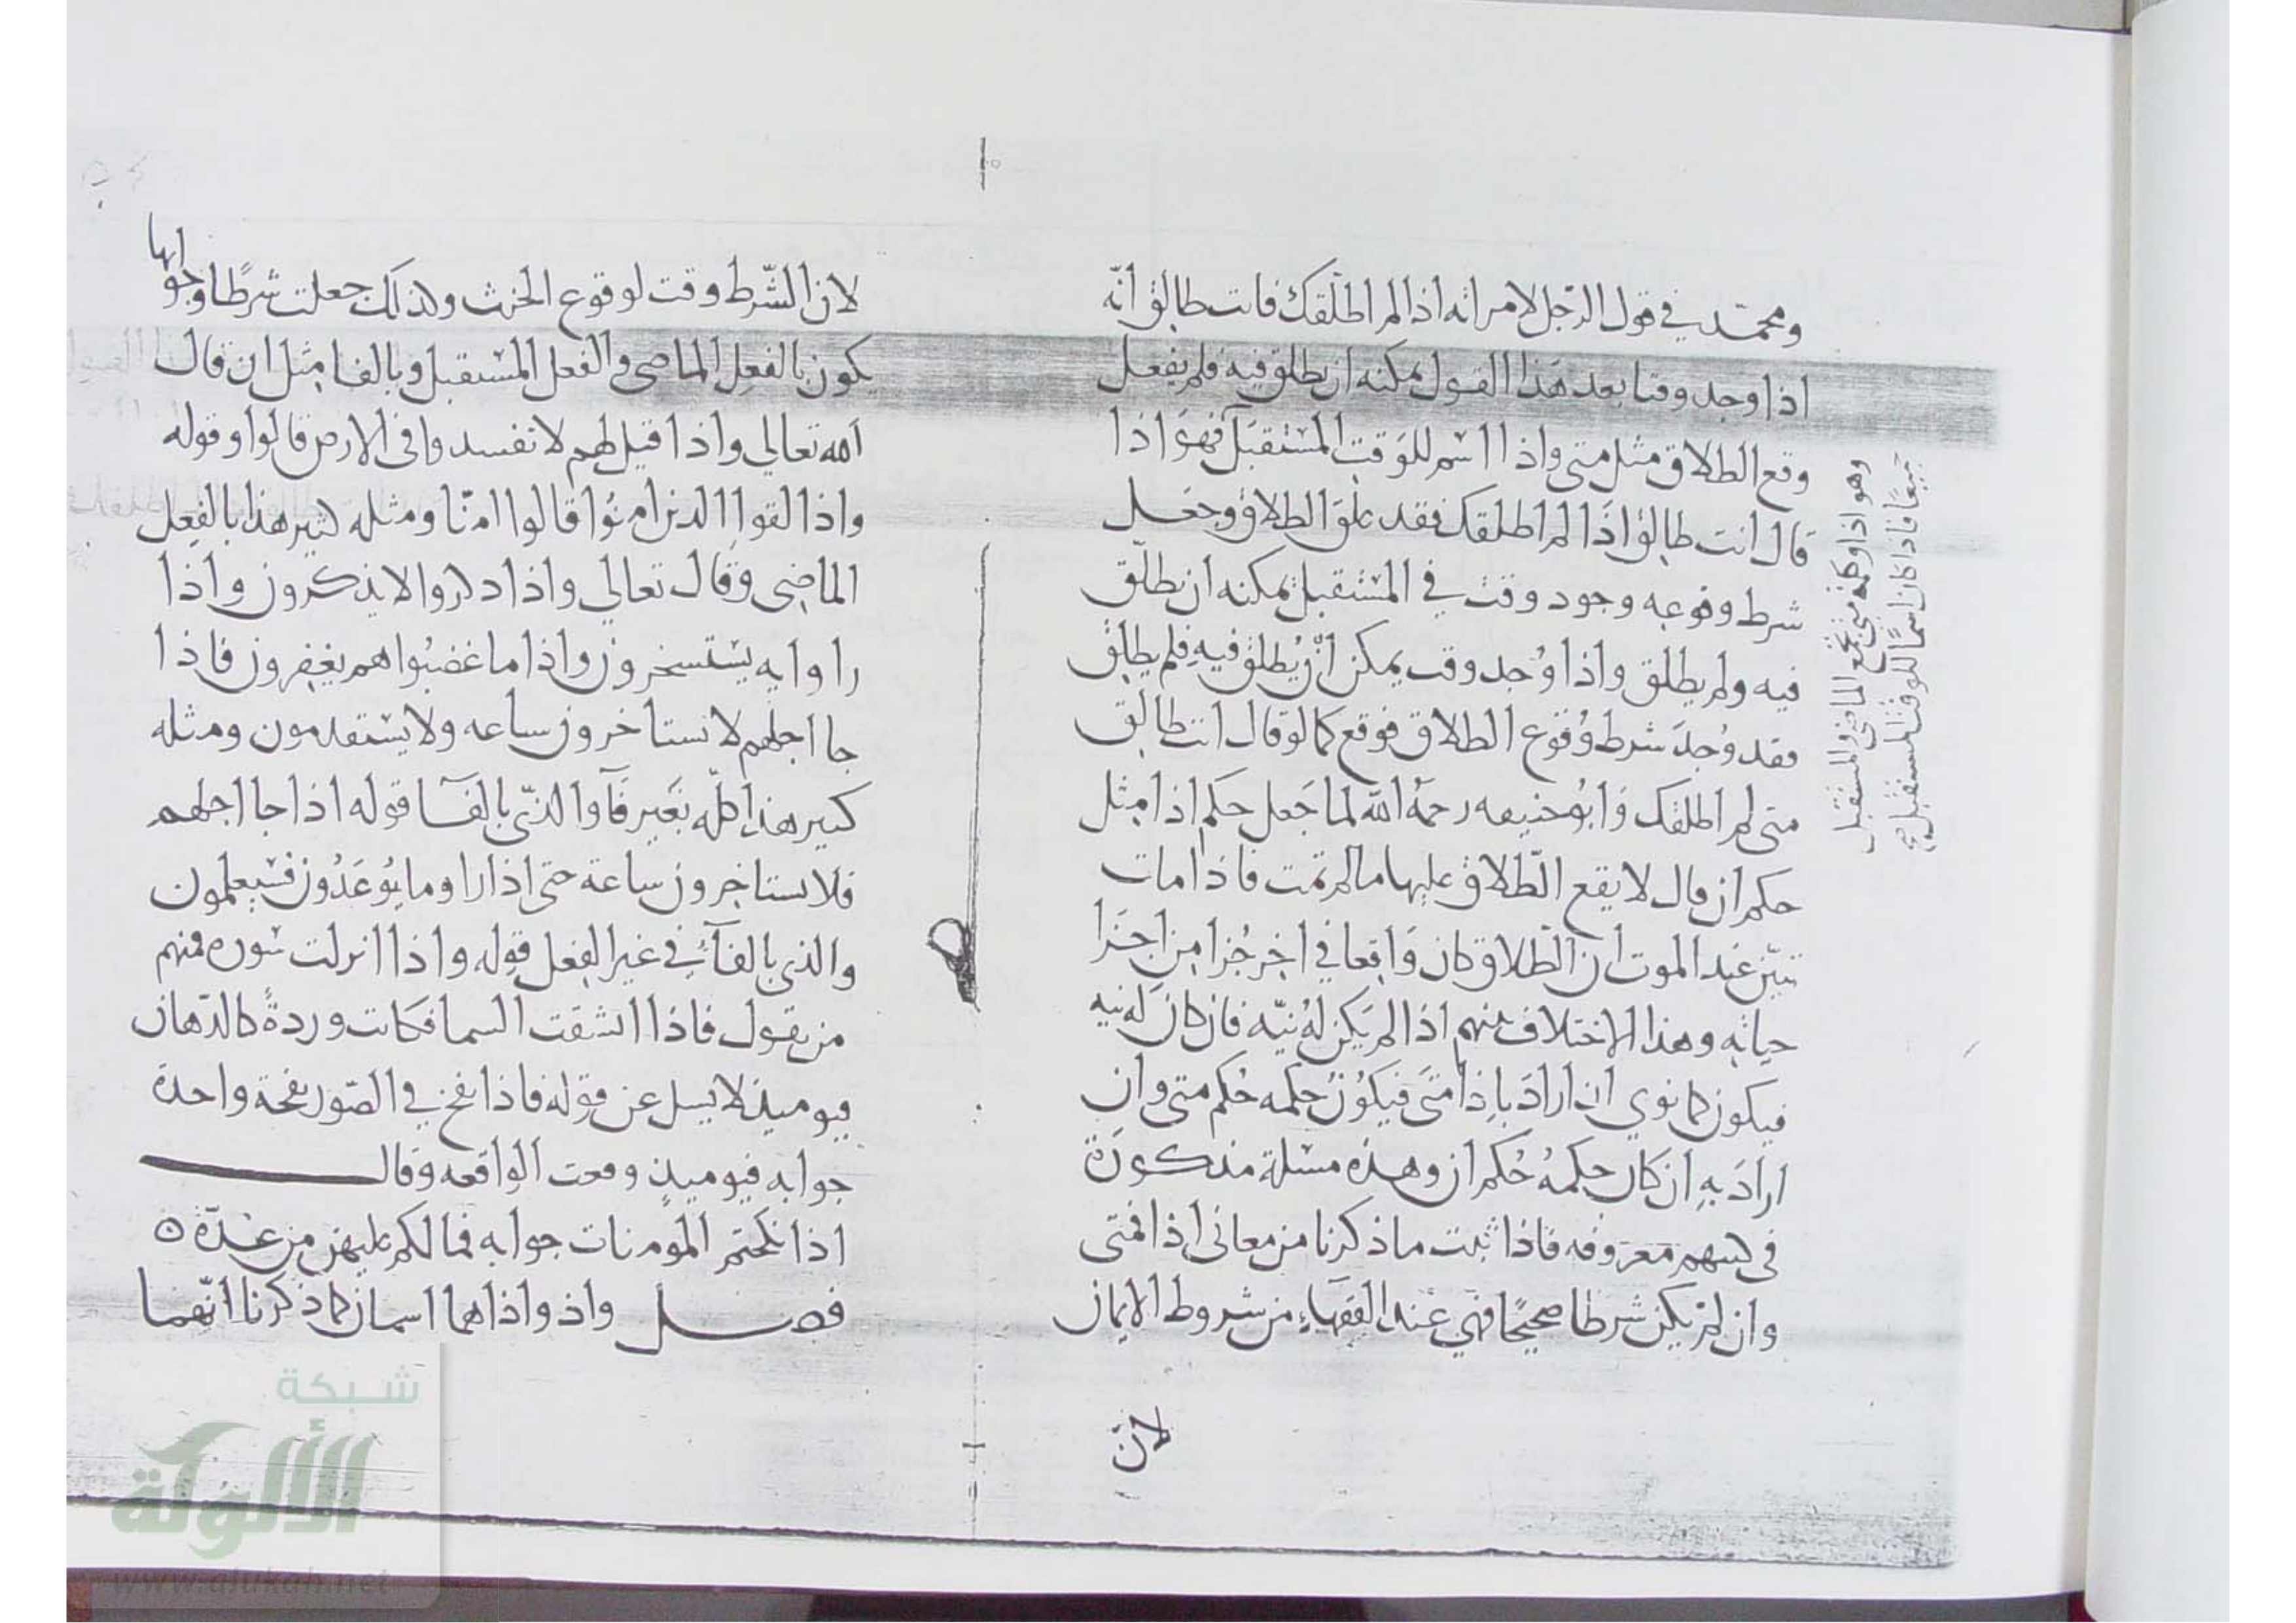 ومحمّد في قول الرّجل لامراته اذا لم اطلقك فانت طالق انّه
اذا وجد وقتا بعد هذا القول يمكنه ان يطلق فيه فلم يفعل
وقع الطلاق مثل متى واذا اسم للوقت المستقبل فهو اذا
قال انت طالق اذا لم اطلقك فقد علق الطلاق وجعل
شرط وقوعه وجود وقت في المستقبل يمكنه ان يطلّق
فيه ولم يطلق واذا وُجد وقت يمكن انْ يُطلق فيه فلم يطلق
فقد وُجدَ شرط وُقوع الطلاق فوقع كما لو قال انت طالق
متى لم اطلقك وَابُو حنيفه رحمهُ الله لما جَعل حكم اذا مثل
حكم ان قال لا يقع الطّلاق عليها ما لم تمت فاذا مات
تبيّن عند الموت ان الطّلاق كان وَاقعا في اخر جُزا من اجزا
حياته وهذا الاختلاف بينهم اذا لم يَكن لهُ نيّه فان كان له نيه
فيكون كما نوي ان ارادَ باذا متَى فيكوُن حكمه حُكم متى وان
ارادَ بهِ ان كان حكمهُ حُكم ان وهذه مسئلة مذكورَة
في كتبهم معروفه فاذا ثبت ما ذكرنا من معاني اذا فمتى
وان لم يكن شرطا صحيحًا فهي عند الفقهاءِ من شروط الايمان
لانّ
وهو اذا وكلمة متى تجمع الماضي والمستقبل
جميعًا فاذا كان اسمًا للوقت المستقبل صح
لان الشّرط وقت لوقوع الحنث ولذلك جعلت شرطًا وجوابها
يكون بالفعل الماضي والفعل المستقبل وبالفا مثل ان قال
الله تعالي واذا قيل لهم لا تفسدوا في الارض قالوا وقوله
واذا لقوا الذين امنُوا قالوا امنّا ومثله كثير هذا بالفعل
الماضى وقال تعالي واذا ذكروا لا يذكرون واذا
راوا ايه يستسخرون واذا ما غضبُوا هم يغفرون فاذا
جا اجلهم لا يستاخرون ساعه ولا يستقدمون ومثله
كثير هذا كلّه بغَير فَآ والذّي بالفَآ قوله اذا جا اجلهم
فلا يستاخرون ساعة حتى اذا راوا ما يُوعَدُون فسَيعلمون
والذي بالفآءِ في غير الفعل قوله واذا انزلت سُوره فمنهم
من يقول فاذا انشقت السما فكانت وردةً كالدّهان
فيوميذ لا يسل عن قوله فاذا نفخ في الصّور نفخة واحدة
جوابه فيوميذٍ وقعت الواقعه وقال
اذا نكحتم المومنات جوابه فما لكم عليهن من عدّة ٥
فصل واذ واذا هما اسمان كما ذكرنا انّهما
شبكة
الألوكة
www.alukah.net